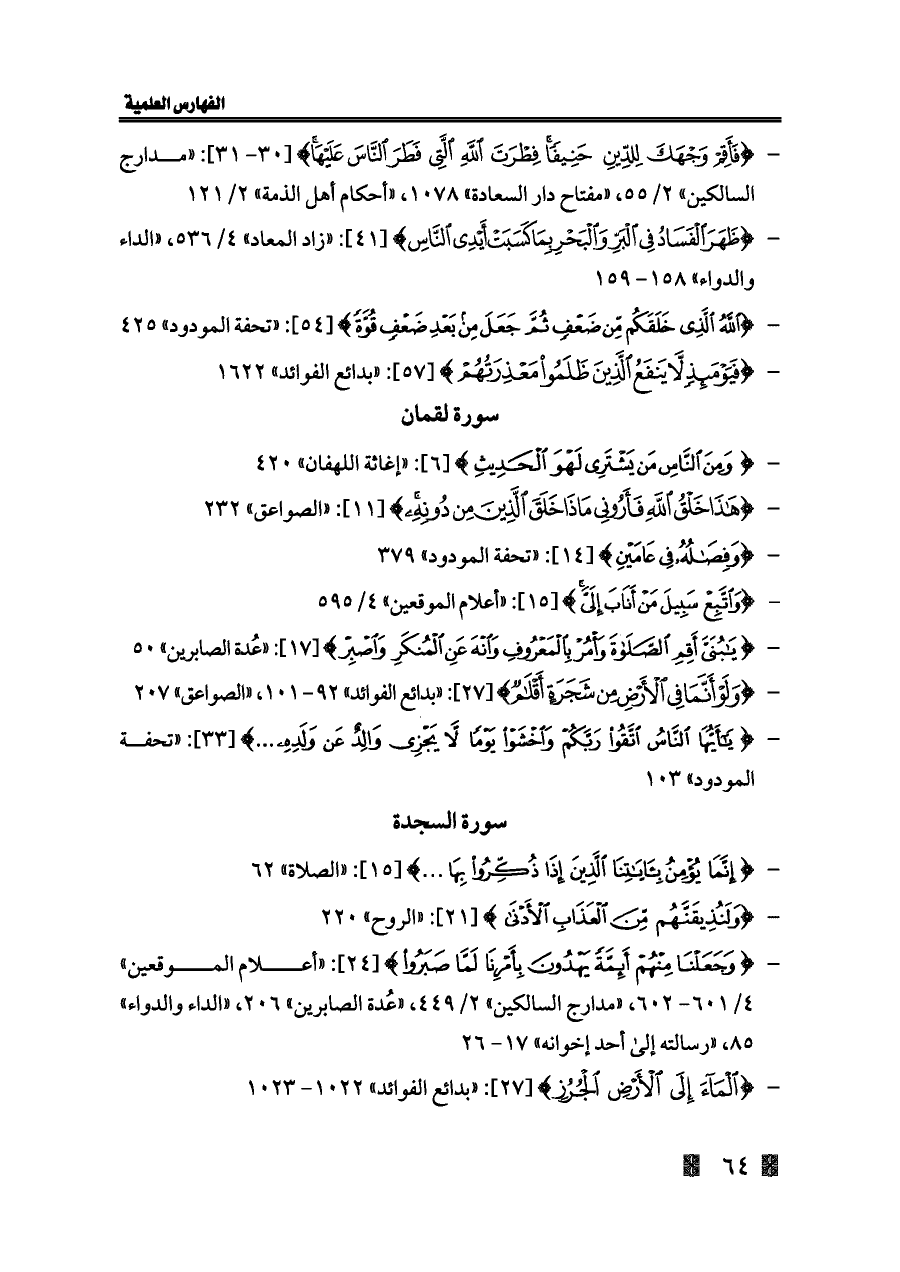 الفهارس العلمية
- ﴿فَأَقِمْ وَجْهَكَ لِلدِّينِ حَنِيفًا فِطْرَتَ اللَّهِ الَّتِي فَطَرَ النَّاسَ عَلَيْهَا﴾ [٣٠- ٣١]: «مـدارج
السالكين» ٢/ ٥٥، «مفتاح دار السعادة» ١٠٧٨، «أحكام أهل الذمة» ٢/ ١٢١
- ﴿ظَهَرَ الْفَسَادُ فِي الْبَرِّ وَالْبَحْرِ بِمَا كَسَبَتْ أَيْدِي النَّاسِ﴾ [٤١]: «زاد المعاد» ٤/ ٥٣٦، «الداء
والدواء» ١٥٨- ١٥٩
- ﴿اللَّهُ الَّذِي خَلَقَكُم مِّن ضَعْفٍ ثُمَّ جَعَلَ مِنۢ بَعْدِ ضَعْفٍ قُوَّةً﴾ [٥٤]: «تحفة المودود» ٤٢٥
- ﴿فَيَوْمَئِذٍ لَّا يَنفَعُ الَّذِينَ ظَلَمُوا مَعْذِرَتُهُمْ﴾ [٥٧]: «بدائع الفوائد» ١٦٢٢
سورة لقمان
- ﴿وَمِنَ النَّاسِ مَن يَشْتَرِي لَهْوَ الْحَدِيثِ﴾ [٦]: «إغاثة اللهفان» ٤٢٠
- ﴿هَٰذَا خَلْقُ اللَّهِ فَأَرُونِي مَاذَا خَلَقَ الَّذِينَ مِن دُونِهِ﴾ [١١]: «الصواعق» ٢٣٢
- ﴿وَفِصَٰلُهُ فِي عَامَيْنِ﴾ [١٤]: «تحفة المودود» ٣٧٩
- ﴿وَاتَّبِعْ سَبِيلَ مَنْ أَنَابَ إِلَيَّ﴾ [١٥]: «أعلام الموقعين» ٤/ ٥٩٥
- ﴿يَٰبُنَيَّ أَقِمِ الصَّلَوٰةَ وَأْمُرْ بِالْمَعْرُوفِ وَانْهَ عَنِ الْمُنكَرِ وَاصْبِرْ﴾ [١٧]: «عُدة الصابرين» ٥٠
- ﴿وَلَوْ أَنَّمَا فِي الْأَرْضِ مِن شَجَرَةٍ أَقْلَٰمٌ﴾ [٢٧]: «بدائع الفوائد» ٩٢- ١٠١، «الصواعق» ٢٠٧
- ﴿يَٰٓأَيُّهَا النَّاسُ اتَّقُوا رَبَّكُمْ وَاخْشَوْا يَوْمًا لَّا يَجْزِي وَالِدٌ عَن وَلَدِهِ...﴾ [٣٣]: «تحفـة
المودود» ١٠٣
سورة السجدة
- ﴿إِنَّمَا يُؤْمِنُ بِـَٔايَٰتِنَا الَّذِينَ إِذَا ذُكِّرُوا بِهَا ...﴾ [١٥]: «الصلاة» ٦٢
- ﴿وَلَنُذِيقَنَّهُم مِّنَ الْعَذَابِ الْأَدْنَىٰ﴾ [٢١]: «الروح» ٢٢٠
- ﴿وَجَعَلْنَا مِنْهُمْ أَئِمَّةً يَهْدُونَ بِأَمْرِنَا لَمَّا صَبَرُوا﴾ [٢٤]: «أعـلام المـوقعين»
٤/ ٦٠١- ٦٠٢، «مدارج السالكين» ٢/ ٤٤٩، «عُدة الصابرين» ٢٠٦، «الداء والدواء»
٨٥، «رسالته إلىٰ أحد إخوانه» ١٧- ٢٦
- ﴿الْمَآءَ إِلَى الْأَرْضِ الْجُرُزِ﴾ [٢٧]: «بدائع الفوائد» ١٠٢٢- ١٠٢٣
٦٤